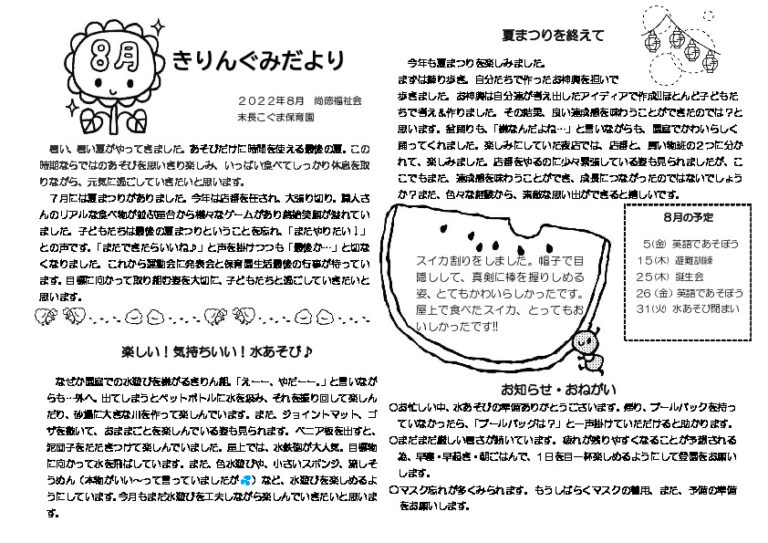 8月
きりんぐみだより
2022年8月　尚徳福祉会
末長こぐま保育園
暑い、暑い夏がやってきました。あそびだけに時間を使える最後の夏。この
時期ならではのあそびを思いきり楽しみ、いっぱい食べてしっかり休息を取
りながら、元気に過ごしていきたいと思います。
７月には夏まつりがありました。今年は店番を任され、大張り切り。職人さ
んのリアルな食べ物が並ぶ屋台から様々なゲームがあり終始笑顔が溢れてい
ました。子どもたちは最後の夏まつりということを忘れ、「またやりたい！」
との声です。「またできたらいいね♪」と声を掛けつつも「最後か…」と切な
くなりました。これから運動会に発表会と保育園生活最後の行事が待ってい
ます。目標に向かって取り組む姿を大切に、子どもたちと過ごしていきたいと
思います。
楽しい！気持ちいい！水あそび♪
なぜか園庭での水遊びを嫌がるきりん組。「えーー、やだーー。」と言いなが
らも…外へ。出てしまうとペットボトルに水を汲み、それを振り回して楽しん
だり、砂場に大きな川を作って楽しんでいます。また、ジョイントマット、ゴ
ザを敷いて、おままごとを楽しんでいる姿も見られます。ベニア板を出すと、
泥団子をたたきつけて楽しんでいました。屋上では、水鉄砲が大人気。目標物
に向かって水を飛ばしています。また、色水遊びや、小さいスポンジ、流しそ
うめん（本物がいい～って言っていましたが💦）など、水遊びを楽しめるよ
うにしています。今月もまだ水遊びを工夫しながら楽しんでいきたいと思いま
す。
夏まつりを終えて
今年も夏まつりを楽しみました。
まずは練り歩き。自分たちで作ったお神輿を担いで
歩きました。お神輿は自分達が考え出したアイディアで作成!!ほとんど子どもた
ちで考え&作りました。その結果、良い達成感を味わうことができたのでは？と
思います。盆踊りも、「嫌なんだよね…」と言いながらも、園庭でかわいらしく
踊ってくれました。楽しみにしていた夜店では、店番と、買い物班の２つに分か
れて、楽しみました。店番をやるのに少々緊張している姿も見られましたが、こ
こでもまた、達成感を味わうことができ、成長につながったのではないでしょう
か？また、色々な経験から、素敵な思い出ができると嬉しいです。
スイカ割りをしました。帽子で目
隠しして、真剣に棒を握りしめる
姿、とてもかわいらしかったです。
屋上で食べたスイカ、とってもお
いしかったです!!
8月の予定
5(金) 英語であそぼう
15(木) 避難訓練
25(木) 誕生会
26(金) 英語であそぼう
31(火) 水あそび閉まい
お知らせ・おねがい
〇お忙しい中、水あそびの準備ありがとうございます。帰り、プールバックを持っ
ていなかったら、「プールバックは？」と一声掛けていただけると助かります。
〇まだまだ厳しい暑さが続いています。疲れが残りやすくなることが予想される
為、早寝・早起き・朝ごはんで、１日を目一杯楽しめるようにして登園をお願い
します。
〇マスク忘れが多くみられます。もうしばらくマスクの着用、また、予備の準備
をお願いします。